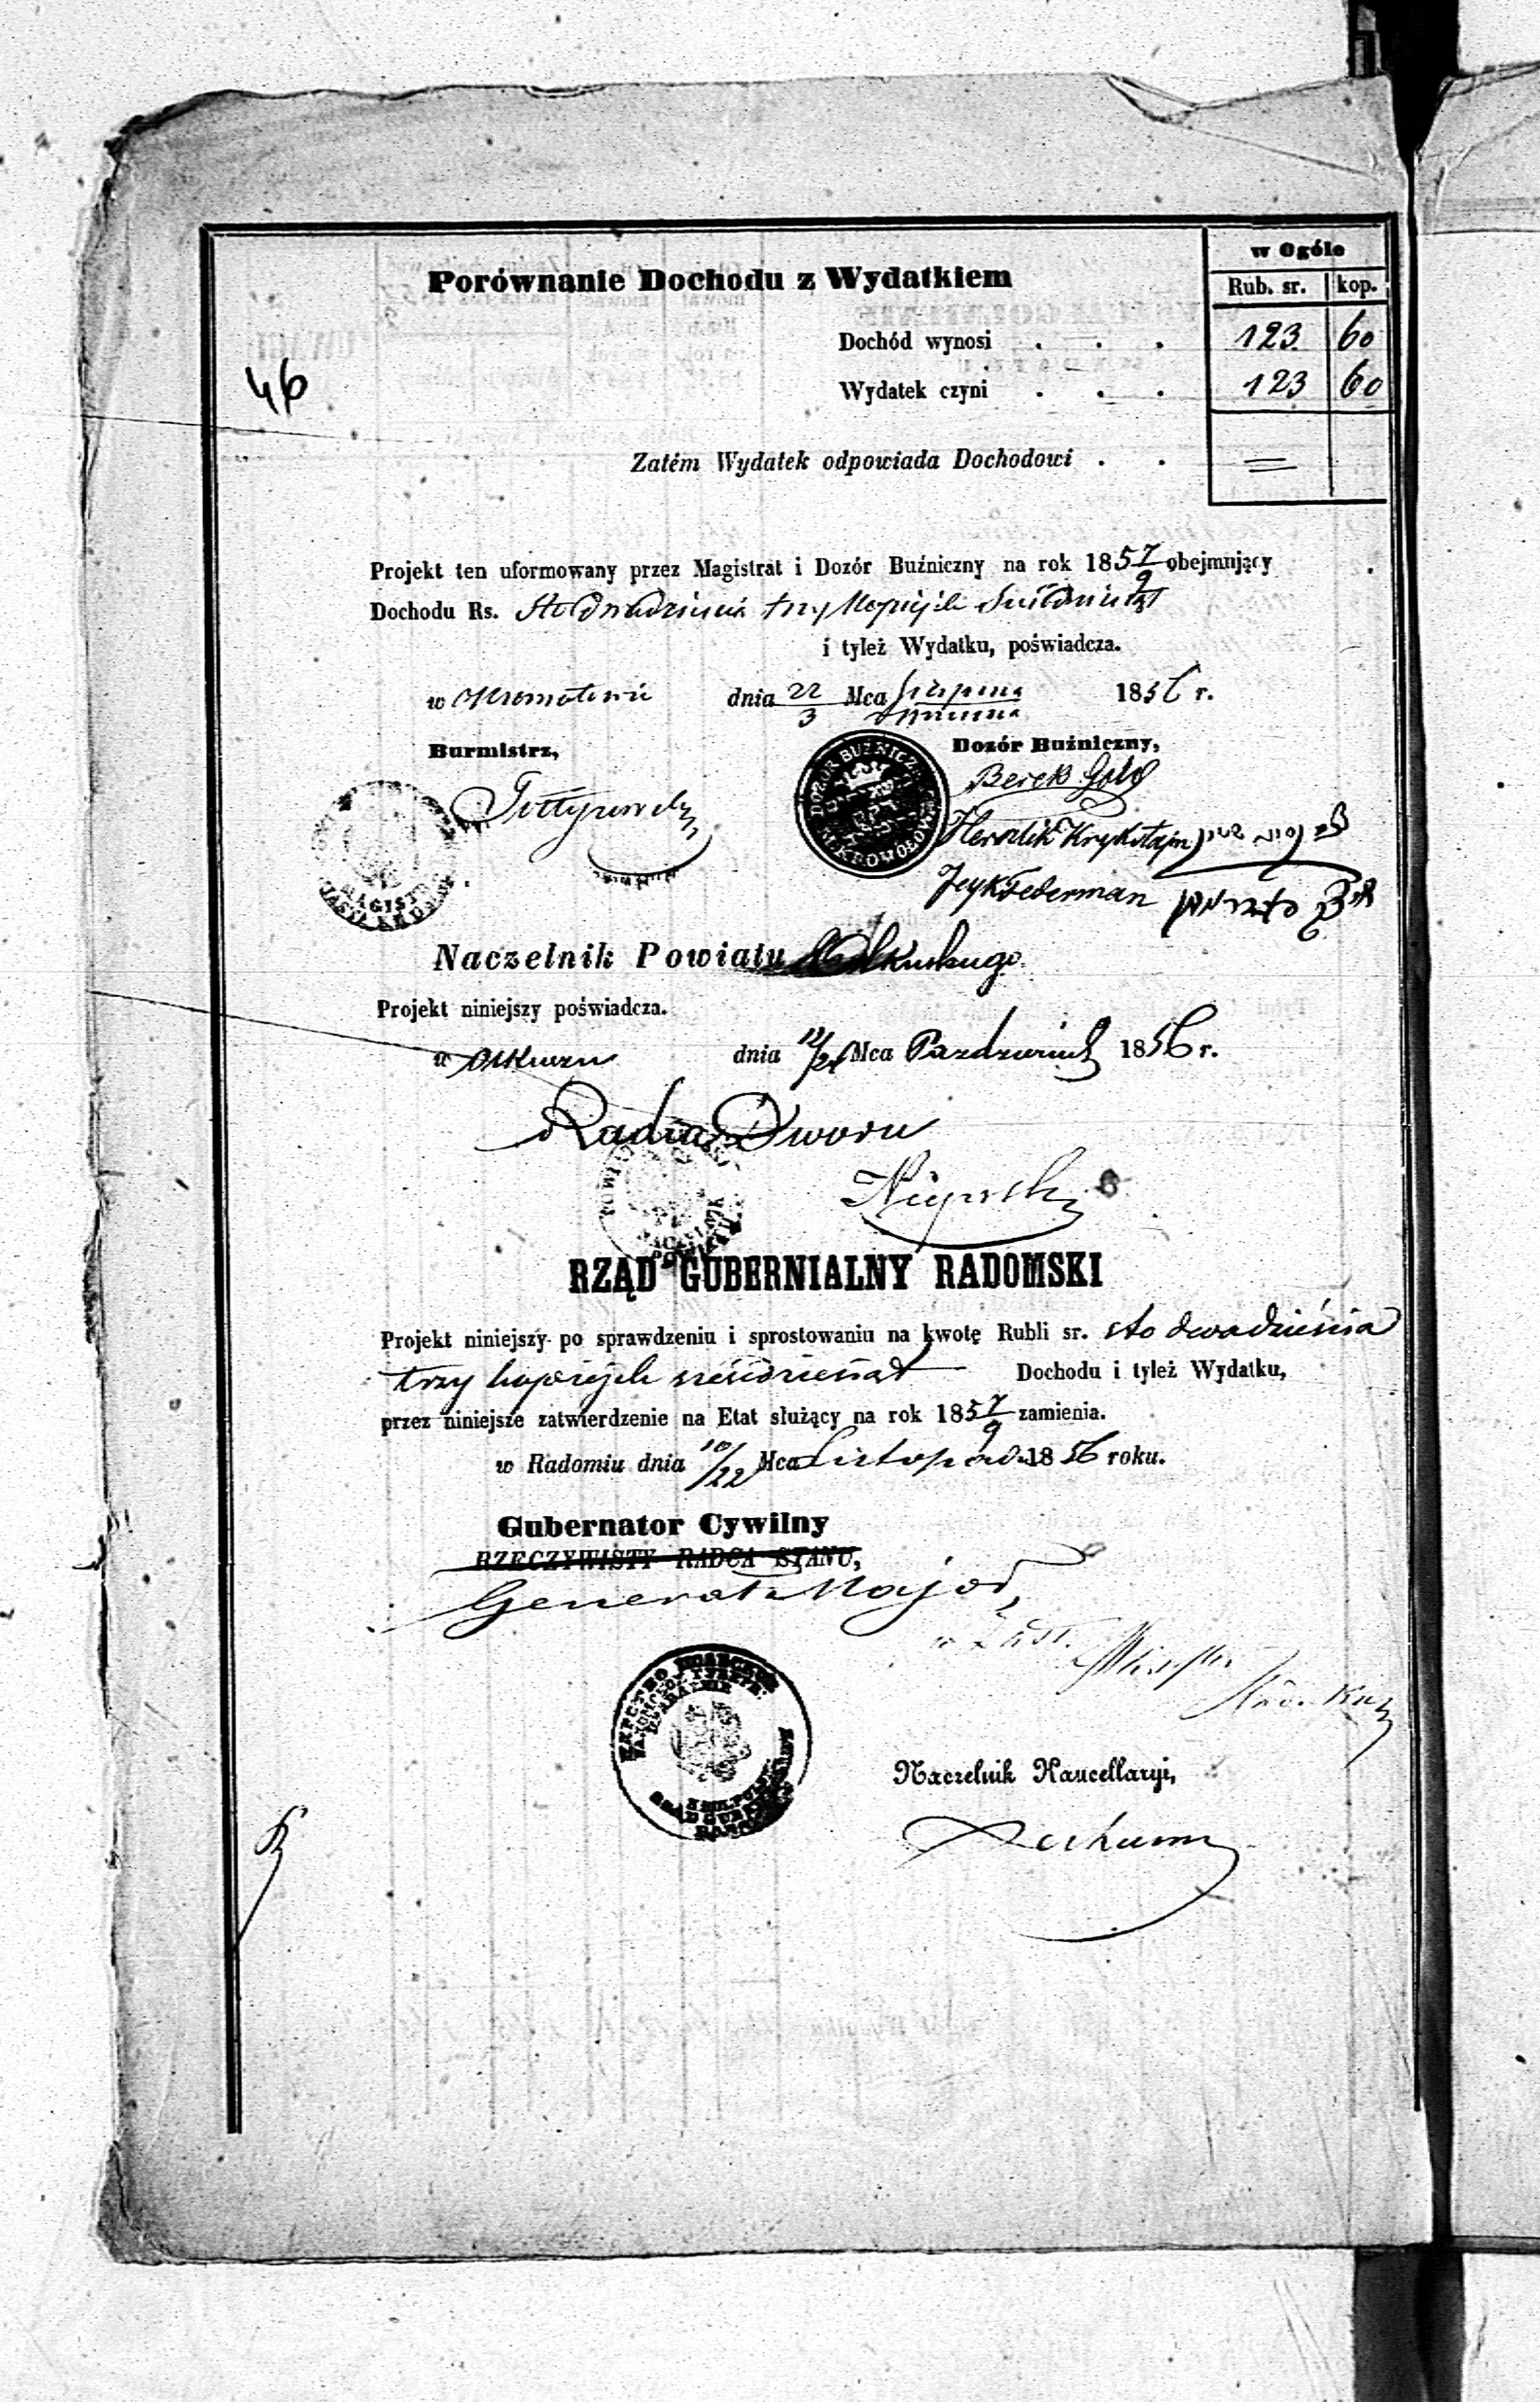 w Ogóle
Porównanie Dochodu z Wydatkiem
Rub. sr. kop.
Dochód wynosi . . . 123 60
46
Wydatek czyni . . . 123 60
Zatém Wydatek odpowiada Dochodowi . . =
Projekt ten uformowany przez Magistrat i Dozór Buźniczny na rok 1857/9 obejmujący
Dochodu Rs. Sto dwadzieścia trzy kopiejek sześćdziesiąt
i tyleż Wydatku, poświadcza.
w dnia 22/3 Mca Sierpnia/Września 1856 r.
Burmistrz, Dozór Buźniczny,
Berek Gold
Herszlik Kryksztajn
Jcyk Federman
Naczelnik Powiatu Olkuskiego
Projekt niniejszy poświadcza.
w Olkuszu dnia 12/24 Mca Pazdziernik 1856 r.
Radca Dworu
RZĄD GUBERNIALNY RADOMSKI
Projekt niniejszy po sprawdzeniu i sprostowaniu na kwotę Rubli sr. sto dwadzieścia
trzy kopiejek sześćdziesiąt Dochodu i tyleż Wydatku,
przez niniejsze zatwierdzenie na Etat służący na rok 1857/9 zamienia.
w Radomiu dnia 10/22 Mca Listopada 1856 roku.
Gubernator Cywilny
RZECZYWISTY RADCA STANU,
Generał Major,
w Zast.
Naczelnik Kancellaryi,